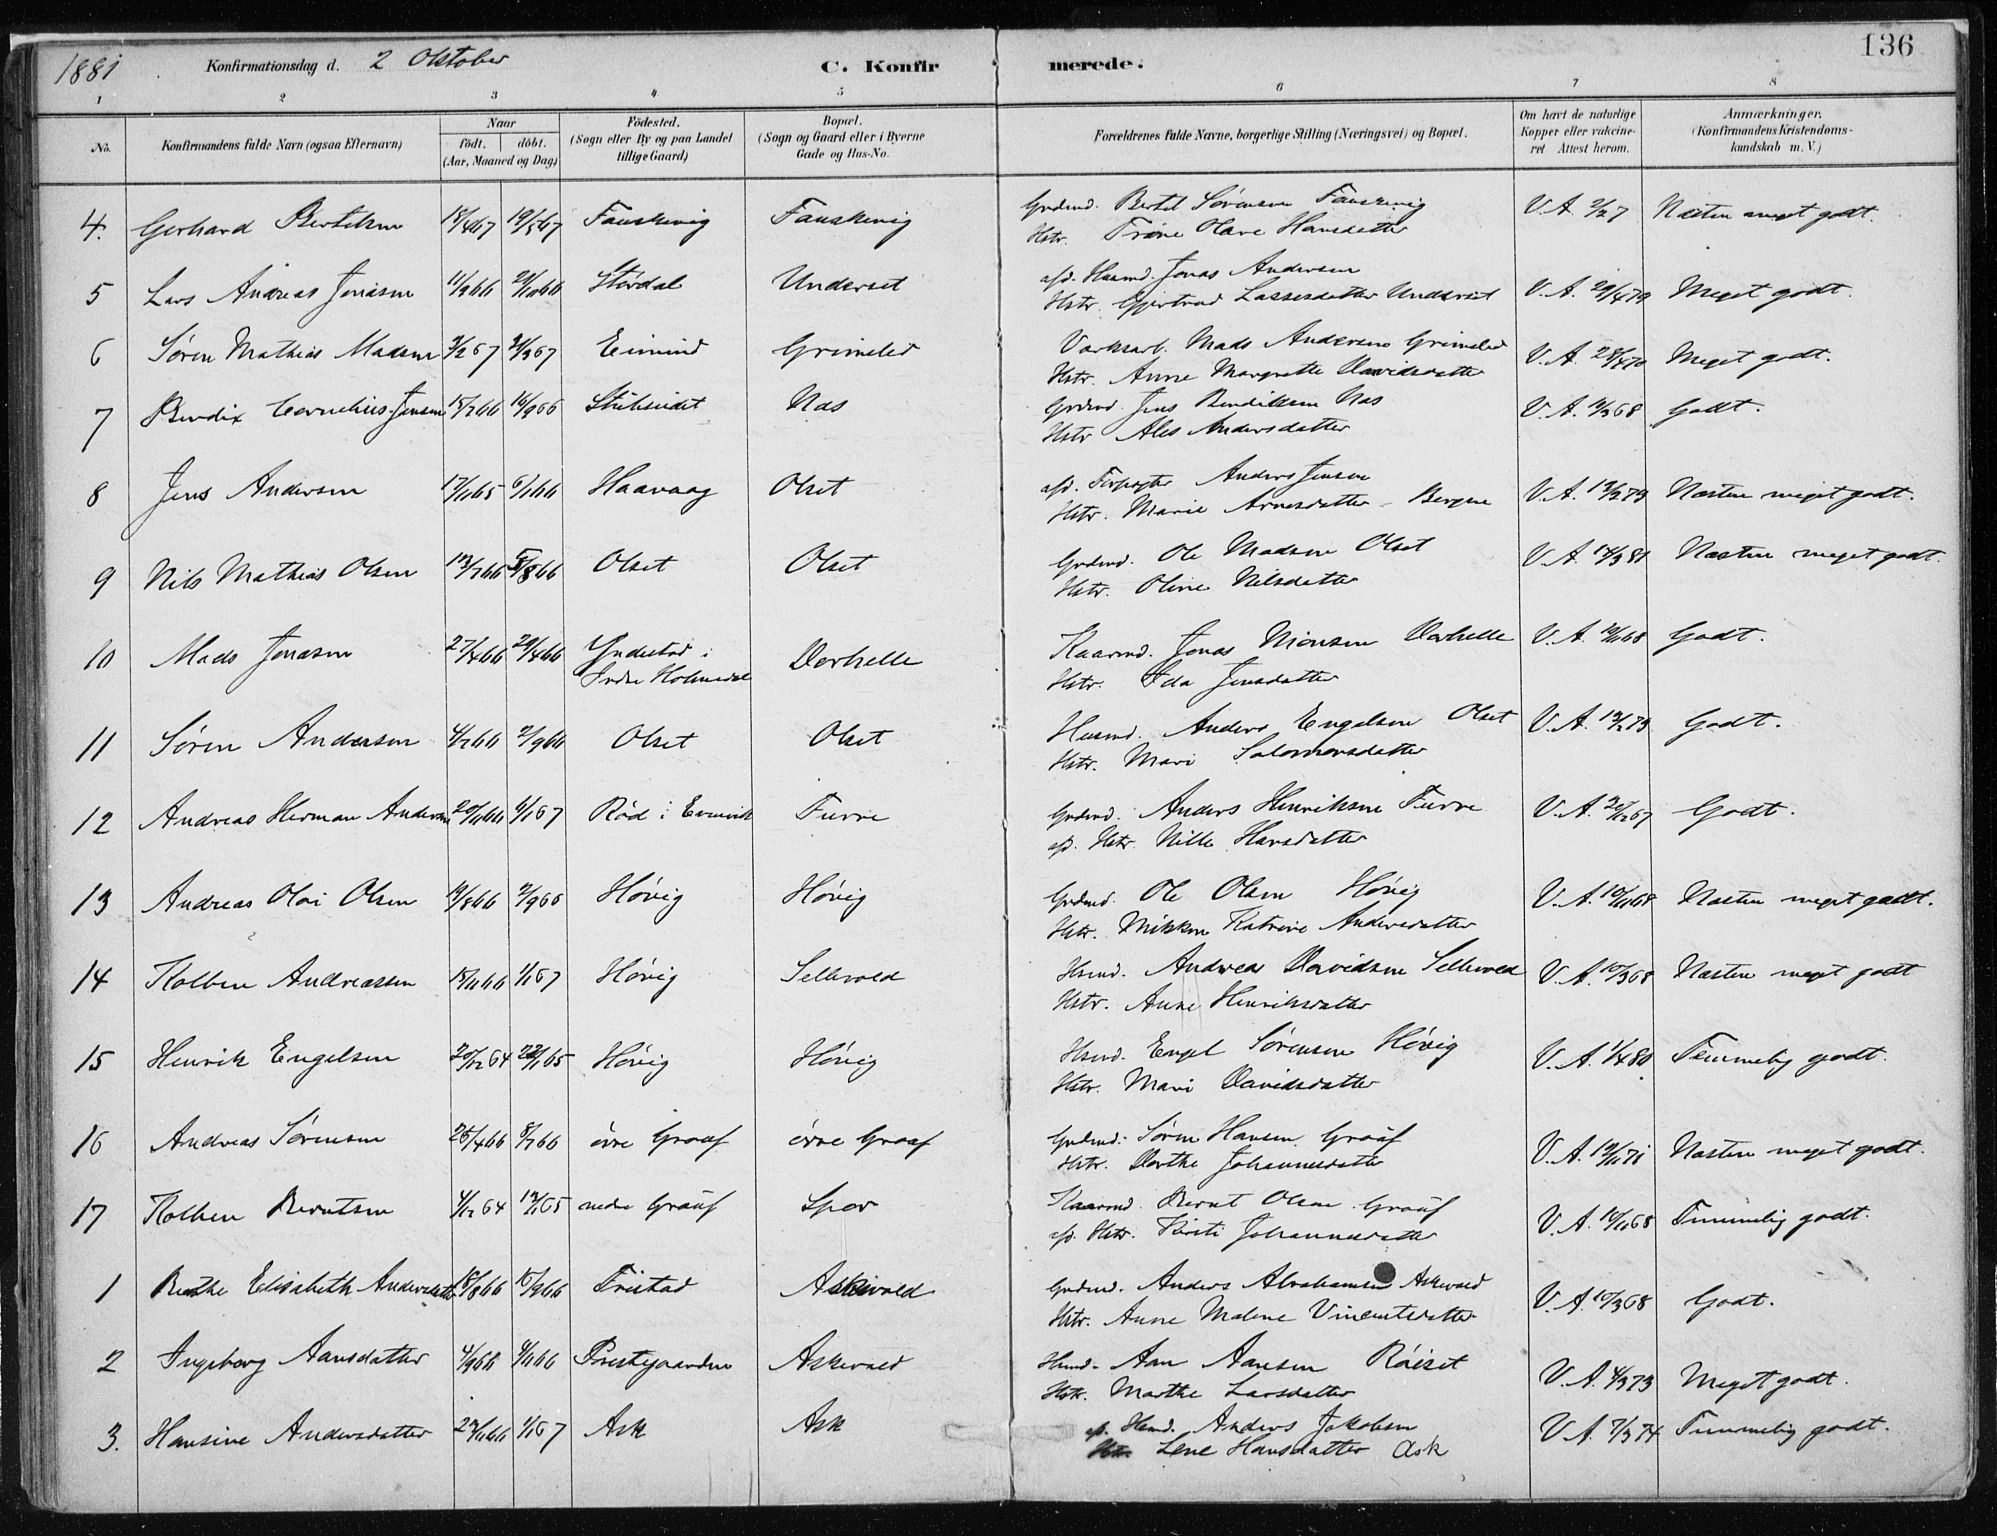 136
1881 Konfirmationsdag d. 2 Oktober C. Konfirmerede.
1 2 3 4 5 6 7 8
No. Konfirmandens fulde Navn (ogsaa Efternavn) Naar födt. döbt. (Aar, Maaned og Dag) Födested. (Sogn eller By og paa Landet tillige Gaard) Bopæl. (Sogn og Gaard eller i Byerne Gade og Hus-No. Forældrenes fulde Navne, borgerlige Stilling (Næringsvei) og Bopæl. Om havt de naturlige Kopper eller vakcineret Attest herom. Anmærkninger. (Konfirmandens Kristendomskundskab m. V.)
4. Gerhard Bertilsen 18/4 67 19/5 67 Fauskevig Fauskevig Grdmd. Bertil Sørensen Fauskevig V.A. Næsten meget godt.
Hstr. Trine Olave Hansdatter
5 Lars Andreas Jonasen 11/9 66 21/10 66 Stördal Underset afd. Huusmd. Jonas Andersen V.A. 29/4 79 Meget godt.
Hstr. Gjertrud Lassesdatter Underset
6 Søren Mathias Madsen Grimeled Mads Andersen Grimeled V.A. Meget godt.
Hstr. Anne Margrethe Davidsdatter
7 Bendix Cornelius Jensen Nas Grdmd. Jens Bendiksen Nas V.A. Godt.
Hstr Ales Andersdatter
8 Jens Andersen 17/11 65 6/1 66 Haavaag Olset afd. Forpagter Anders Jensen V.A. Næsten meget godt.
Hstr. Marie Arnesdatter - Bergen
9 Nils Mathias Olsen 13/7 66 5/8 66 Olset Olset Grdmd. Ole Madsen Olset V.A. 14/3 81 Næsten meget godt.
Hstr. Oline Nilsdatter
10 Mads Jonasen 27/4 66 29/4 66 Yndestad i Kaarmd. Jonas Monsen V.A. Godt.
Indre Holmedal
Hstr. Ida Jensdatter
11 Søren Andersen 4/7 66 2/9 66 Olset Olset Husmd. Anders Engelsen Olset V.A. Godt.
Hstr. Mari Salomonsdatter
12 Andreas Herman Andersen 20/11 66 1/1 67 Röd i Eivindvik Furre Grdmd. Anders Henriksen Furre V.A. 20/12 67 Godt.
afd. Hstr. Nille Hansdatter
13 Andreas Olai Olsen 14/8 66 2/9 66 Hövig Hövig Grdmd. Ole Olsen Hövig V.A. 10/11 68 Næsten meget godt.
Hstr. Katrine Andersdatter
14 Kolben Andreassen 18/11 66 1/1 67 Hövig Sellevold Hsmd. Andreas Davidsen Sellevold V.A. 10/3 68 Næsten meget godt
Hstr. Anne Henriksdatter
15 Henrik Engelsen 20/12 64 22/1 65 Hövig Hövig Hsmd. Engel Sörensen Hövig V.A. 1/4 80 Temmelig godt.
Hstr. Mari Davidsdatter
16 Andreas Sörensen 25/4 66 8/7 66 övre Graaf övre Graaf Grdmd. Sören Hansen Graaf V.A. Næsten meget godt.
Hstr. Dorthe Johannesdatter
17 Kolben Berntsen 4/12 64 nedre Graaf Kaarmd. Bernt Olsen Graaf V.A. 10/11 68 Temmelig godt.
afd. Hstr. Kirsti Johannesdatter
1 Berthe Elisabeth Andersdatter Fristad Askevold Grdmd. Anders Abrahamsen Askevold V.A. 10/3 68 Godt.
Hstr. Anne Malene Vincentsdatter
2 Ingeborg Aamsdatter 4/9 66 Prestegaarden Askevold Hsmd. Aam Aamsen Röiset V.A. 4/3 73 Meget godt.
Hstr. Marthe Larsdatter
3. Hansine Andersdatter 1/1 67 Ask Ask afd. Hsmd. Anders Jakobsen V.A. 7/3 74 Temmelig godt.
Hstr. Lene Hansdatter Ask